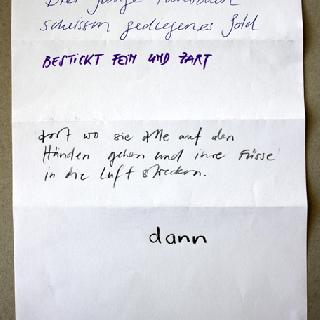 scheissen gediegenes Gold
BESTICKT FEIN UND ZART
dort wo sie Alle auf den
Händen gehen und ihre Füsse
in die Luft strecken.
dann